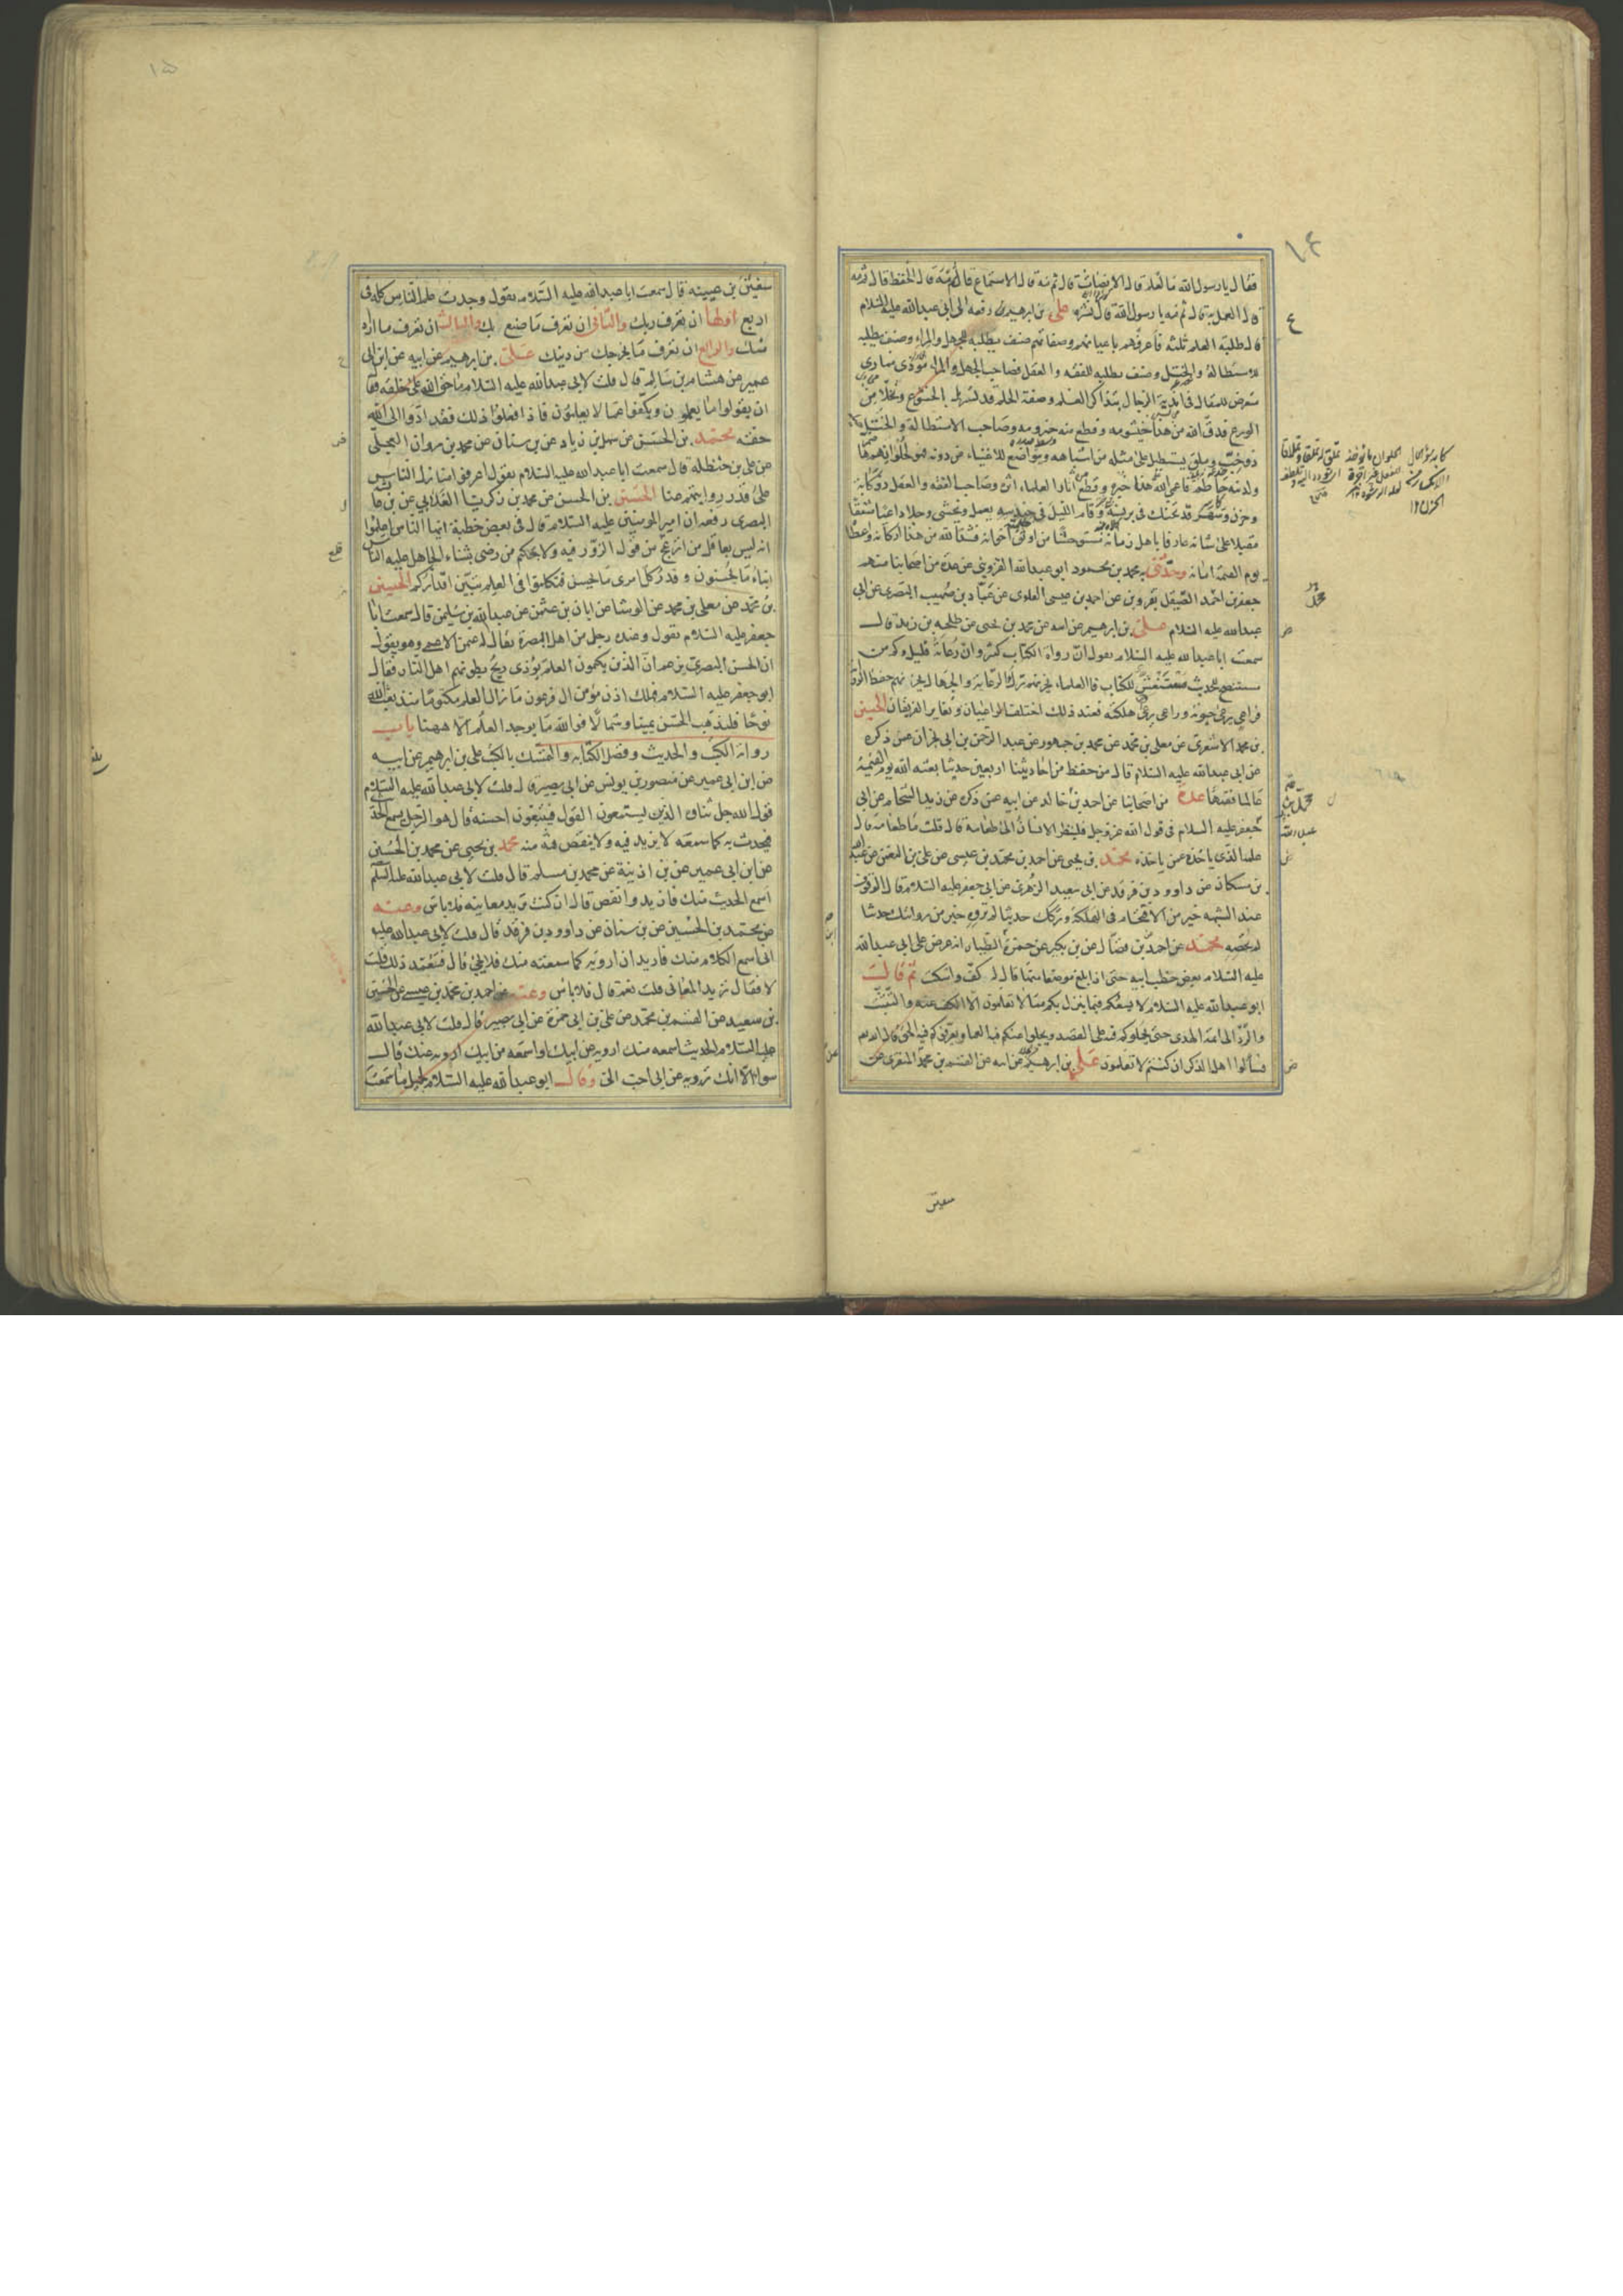 ١٤
فقال يا رسول الله ما العلم قال الانصات قال ثم مه قال الاستماع قال ثم مه قال الحفظ قال ثم مه
قال العمل به قال ثم مه يا رسول الله قال نشره علي بن ابرهيم رفعه الى ابي عبدالله عليه السلام
قال طلبة العلم ثلثة فاعرفهم باعيانهم وصفاتهم صنف يطلبه للجهل والمراء وصنف يطلبه
للاستطالة والختل وصنف يطلبه للفقه والعقل فصاحب الجهل والمراء موذي مماري
متعرض للمقال في اندية الرجال بتذاكر العلم وصفة الحلم قد تسربل بالخشوع وتخلا من
الورع فدق الله من هذا خيشومه وقطع منه حيزومه وصاحب الاستطالة والختل
ذو خب وملق يستطيل على مثله من اشباهه ويتواضع للاغنياء من دونه فهو لحلوائهم هاضم
ولدينه حاطم فاعمى الله على هذا خبره وقطع من آثار العلماء اثره وصاحب الفقه والعقل ذو كآبة
وحزن وسهر قد تحنك في برنسه وقام الليل في حندسه يعمل ويخشى وجلا داعيا مشفقا
مقبلا على شانه عارفا باهل زمانه مستوحشا من اوثق اخوانه فشد الله من هذا اركانه واعطا
يوم القيمة امانه وحدثني به محمد بن محمود ابو عبدالله القزويني عن عدة من اصحابنا منهم
جعفر بن احمد الصيقل بقزوين عن احمد بن عيسى العلوي عن عباد بن صهيب البصري عن ابي
عبدالله عليه السلام علي بن ابرهيم عن ابيه عن محمد بن يحيى عن طلحة بن زيد قال
سمعت ابا عبدالله عليه السلام يقول ان رواة الكتاب كثير وان رعاته قليل وكم من
مستنصح للحديث مستغش للكتاب فالعلماء يحزنهم ترك الرعاية والجهال يحزنهم حفظ الرواية
فراعي يرعى حيوته وراعي يرعى هلكته فعند ذلك اختلف الراعيان وتغاير الفريقان الحسين
بن محمد الاشعري عن معلى بن محمد عن محمد بن جمهور عن عبد الرحمن بن ابي نجران عمن ذكره
عن ابي عبدالله عليه السلام قال من حفظ من احاديثنا اربعين حديثا بعثه الله يوم القيمة
عالما فقيها عدة من اصحابنا عن احمد بن خالد عن ابيه عمن ذكره عن زيد الشحام عن ابي
جعفر عليه السلام في قول الله عز وجل فلينظر الانسان الى طعامه قال قلت ما طعامه قال
علمه الذي ياخذه عمن ياخذه محمد بن يحيى عن احمد بن محمد بن عيسى عن علي بن النعمن عن عبدالله
بن مسكان عن داوود بن فرقد عن ابي سعيد الزهري عن ابي جعفر عليه السلام قال الوقوف
عند الشبهه خير من الاقتحام في الهلكة وتركك حديثا لم تروه خير من روايتك حديثا
لم تحصه محمد عن احمد بن فضال عن بن بكير عن حمزة الطيار انه عرض على ابي عبدالله
عليه السلام بعض خطب ابيه حتى اذا بلغ موضعا منها قال له كف واسكت ثم قال
ابو عبدالله عليه السلام لا يسعكم فيما ينزل بكم مما لا تعلمون الا الكف عنه والتثبت
والرد الى ائمة الهدى حتى يحملوكم فيه على القصد ويجلوا عنكم فيه العما ويعرفوكم فيه الحق قال الله تعالى
فسألوا اهل الذكر ان كنتم لا تعلمون علي بن ابرهيم عن ابيه عن القسم بن محمد المنقري عن
سفين
١٥
سفين بن عيينه قال سمعت ابا عبدالله عليه السلام يقول وجدت علم الناس كله في
اربع اولها ان تعرف ربك والثاني ان تعرف ما صنع بك والثالث ان تعرف ما اراد
منك والرابع ان تعرف ما يخرجك من دينك علي بن ابرهيم عن ابيه عن ابن ابي
عمير عن هشام بن سالم قال قلت لابي عبدالله عليه السلام ما حق الله على خلقه فقا
ان يقولوا ما يعلمون ويكفوا عما لا يعلمون فاذا فعلوا ذلك فقد ادوا الى الله
حقه محمد بن الحسن عن سهل بن زياد عن بن سنان عن محمد بن مروان العجلي
عن علي بن حنظلة قال سمعت ابا عبدالله عليه السلام يقول اعرفوا منازل الناس
على قدر روايتهم عنا الحسين بن الحسن عن محمد بن زكريا الغلابي عن بن عائشة
البصري رفعه ان امير المومنين عليه السلام قال في بعض خطبه ايها الناس اعلموا
انه ليس بعاقل من انزعج من قول الزور فيه ولا بحكيم من رضي بثناء الجاهل عليه الناس
ابناء ما يحسنون وقدر كل امرئ ما يحسن فتكلموا في العلم تبين اقداركم الحسين
بن محمد عن معلى بن محمد عن الوشا عن ابان بن عثمن عن عبدالله بن سليمن قال سمعت ابا
جعفر عليه السلام يقول وعنده رجل من اهل البصرة يقال له عثمن الاعمى وهو يقول
ان الحسن البصري يزعم ان الذين يكتمون العلم يؤذي ريح بطونهم اهل النار فقال
ابو جعفر عليه السلام فهلك اذن مؤمن ال فرعون ما زال العلم مكتوما منذ بعث الله
نوحا فليذهب الحسن يمينا وشمالا فوالله ما يوجد العلم الا ههنا باب
رواية الكتب والحديث وفضل الكتابه والتمسك بالكتب علي بن ابرهيم عن ابيه
عن ابن ابي عمير عن منصور بن يونس عن ابي بصير قال قلت لابي عبدالله عليه السلام
قول الله جل ثناؤه الذين يستمعون القول فيتبعون احسنه قال هو الرجل يسمع الحديث
فيحدث به كما سمعه لا يزيد فيه ولا ينقص منه محمد بن يحيى عن محمد بن الحسين
عن ابن ابي عمير عن بن اذينة عن محمد بن مسلم قال قلت لابي عبدالله عليه السلم
اسمع الحديث منك فازيد وانقص قال ان كنت تريد معانيه فلا باس وعنه
عن محمد بن الحسين عن بن سنان عن داوود بن فرقد قال قلت لابي عبدالله عليه
اني اسمع الكلام منك فاريد ان ارويه كما سمعته منك فلا يجئ قال فتعمد ذلك قلت
لا فقال تريد المعاني قلت نعم قال فلا باس وعنه عن احمد بن محمد بن عيسى عن الحسين
بن سعيد عن القسم بن محمد عن علي بن ابي حمزة عن ابي بصير قال قلت لابي عبدالله
عليه السلام الحديث اسمعه منك ارويه عن ابيك او اسمعه من ابيك ارويه عنك قال
سواء الا انك ترويه عن ابي احب الي وقال ابو عبدالله عليه السلام لجميل ما سمعت